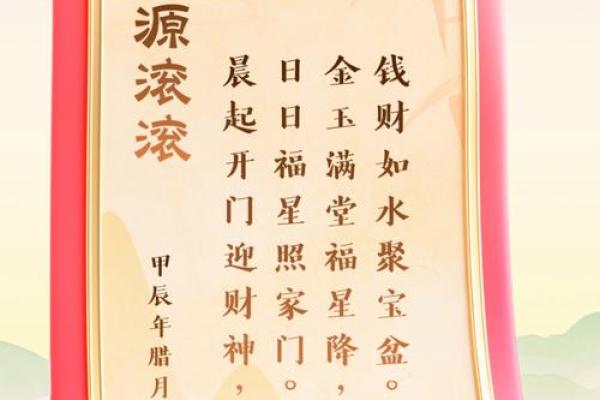 源滚滚
甲辰年腊月
晨起开门迎财神，
日日福星照家门。
金玉满堂福星降，
钱财如水聚宝盆。